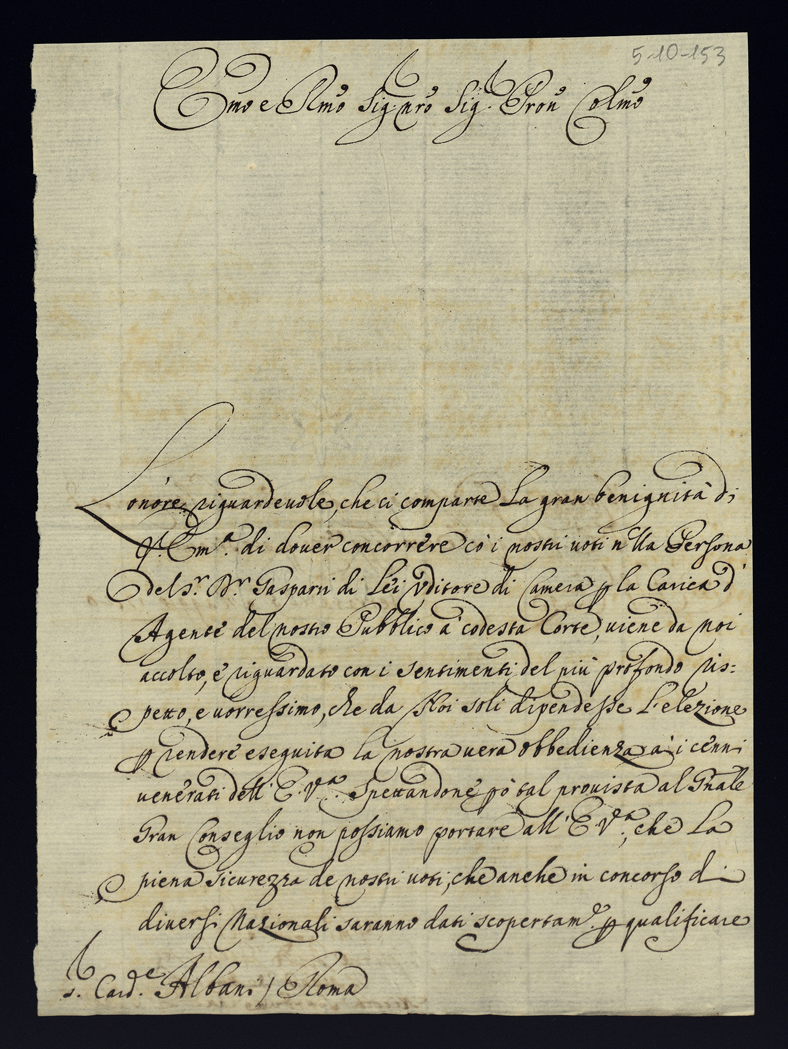 5-10-153
Emo e Rmo Sig.nro Sig. Pron Colmo
L'onore riguardeuole, che ci comparte La gran benignità di
V. Em.ª di douer concorrere cò i nostri uoti nlla Persona
del S.r D.r Gasparri di Lei Vditore di Camera p la Carica d'
Agente del nostro Pubblico à codesta Corte, uiene da noi
accolto, e riguardato con i sentimenti del più profondo ris=
petto, e uorressimo, che da Noi soli dipendesse L'elezione
p rendere eseguita la nostra uera obbedienza à i cenni
uenerati dell' E. V.ª Spettandone pò tal prouista al Gnale
Gran Conseglio non possiamo portare all' E. V.ª, che La
piena sicurezza de nostri uoti, che anche in concorso di
diuersi Nazionali saranno dati scopertam.e p qualificare
S. Card.e Albani / Roma